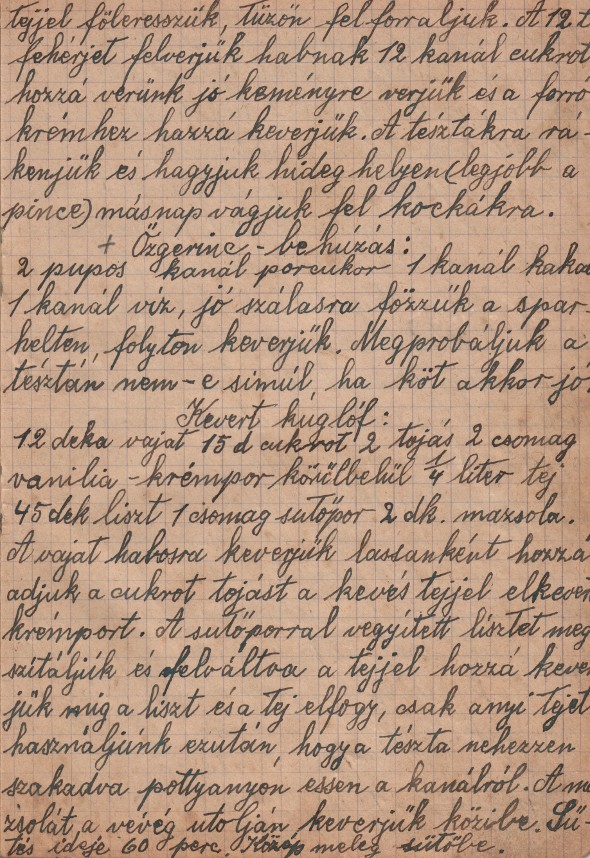 tejjel föleresszük, tüzön fel forraljuk. A 12 t
fehérjet felverjük habnak 12 kanál cukrot
hozzá verünk jó keményre verjük és a forró
krémhez hazzá keverjük. A tésztákra rá-
kenjük és hagyjuk hideg helyen (legjóbb a
pince) másnap vágjuk fel kockákra.
+ Őzgerinc - behúzás:
2 pupos kanál porcukor 1 kanál kaka
1 kanál víz, jó szálasra főzzük a spar-
helten, folyton keverjük. Megprobáljuk a
tésztán nem-e simúl, ha köt akkor jó.
Kevert kúglóf:
12 deka vajat 15 d cukrot 2 tojás 2 csomag
vanilia - krémpor körülbelül 1/4 liter tej
45 dek liszt 1 csomag sutőpor 2 dk. mazsola.
A vajat habosra keverjük lassanként hozzá
adjuk a cukrot tojást a kevés tejjel elkever
krémport. A sutőporral vegyített lisztet meg
szitáljúk és felváltva a tejjel hozzá keve
jük mig a liszt és a tej elfogy, csak anyi tejet
használjúnk ezután, hogy a tészta nehezzen
szakadva pottyanyon essen a kanálról. A ma
zsolát, a vévég utolján keverjük közibe. Sü-
tés ideje 60 perc. Közép meleg sütőbe.